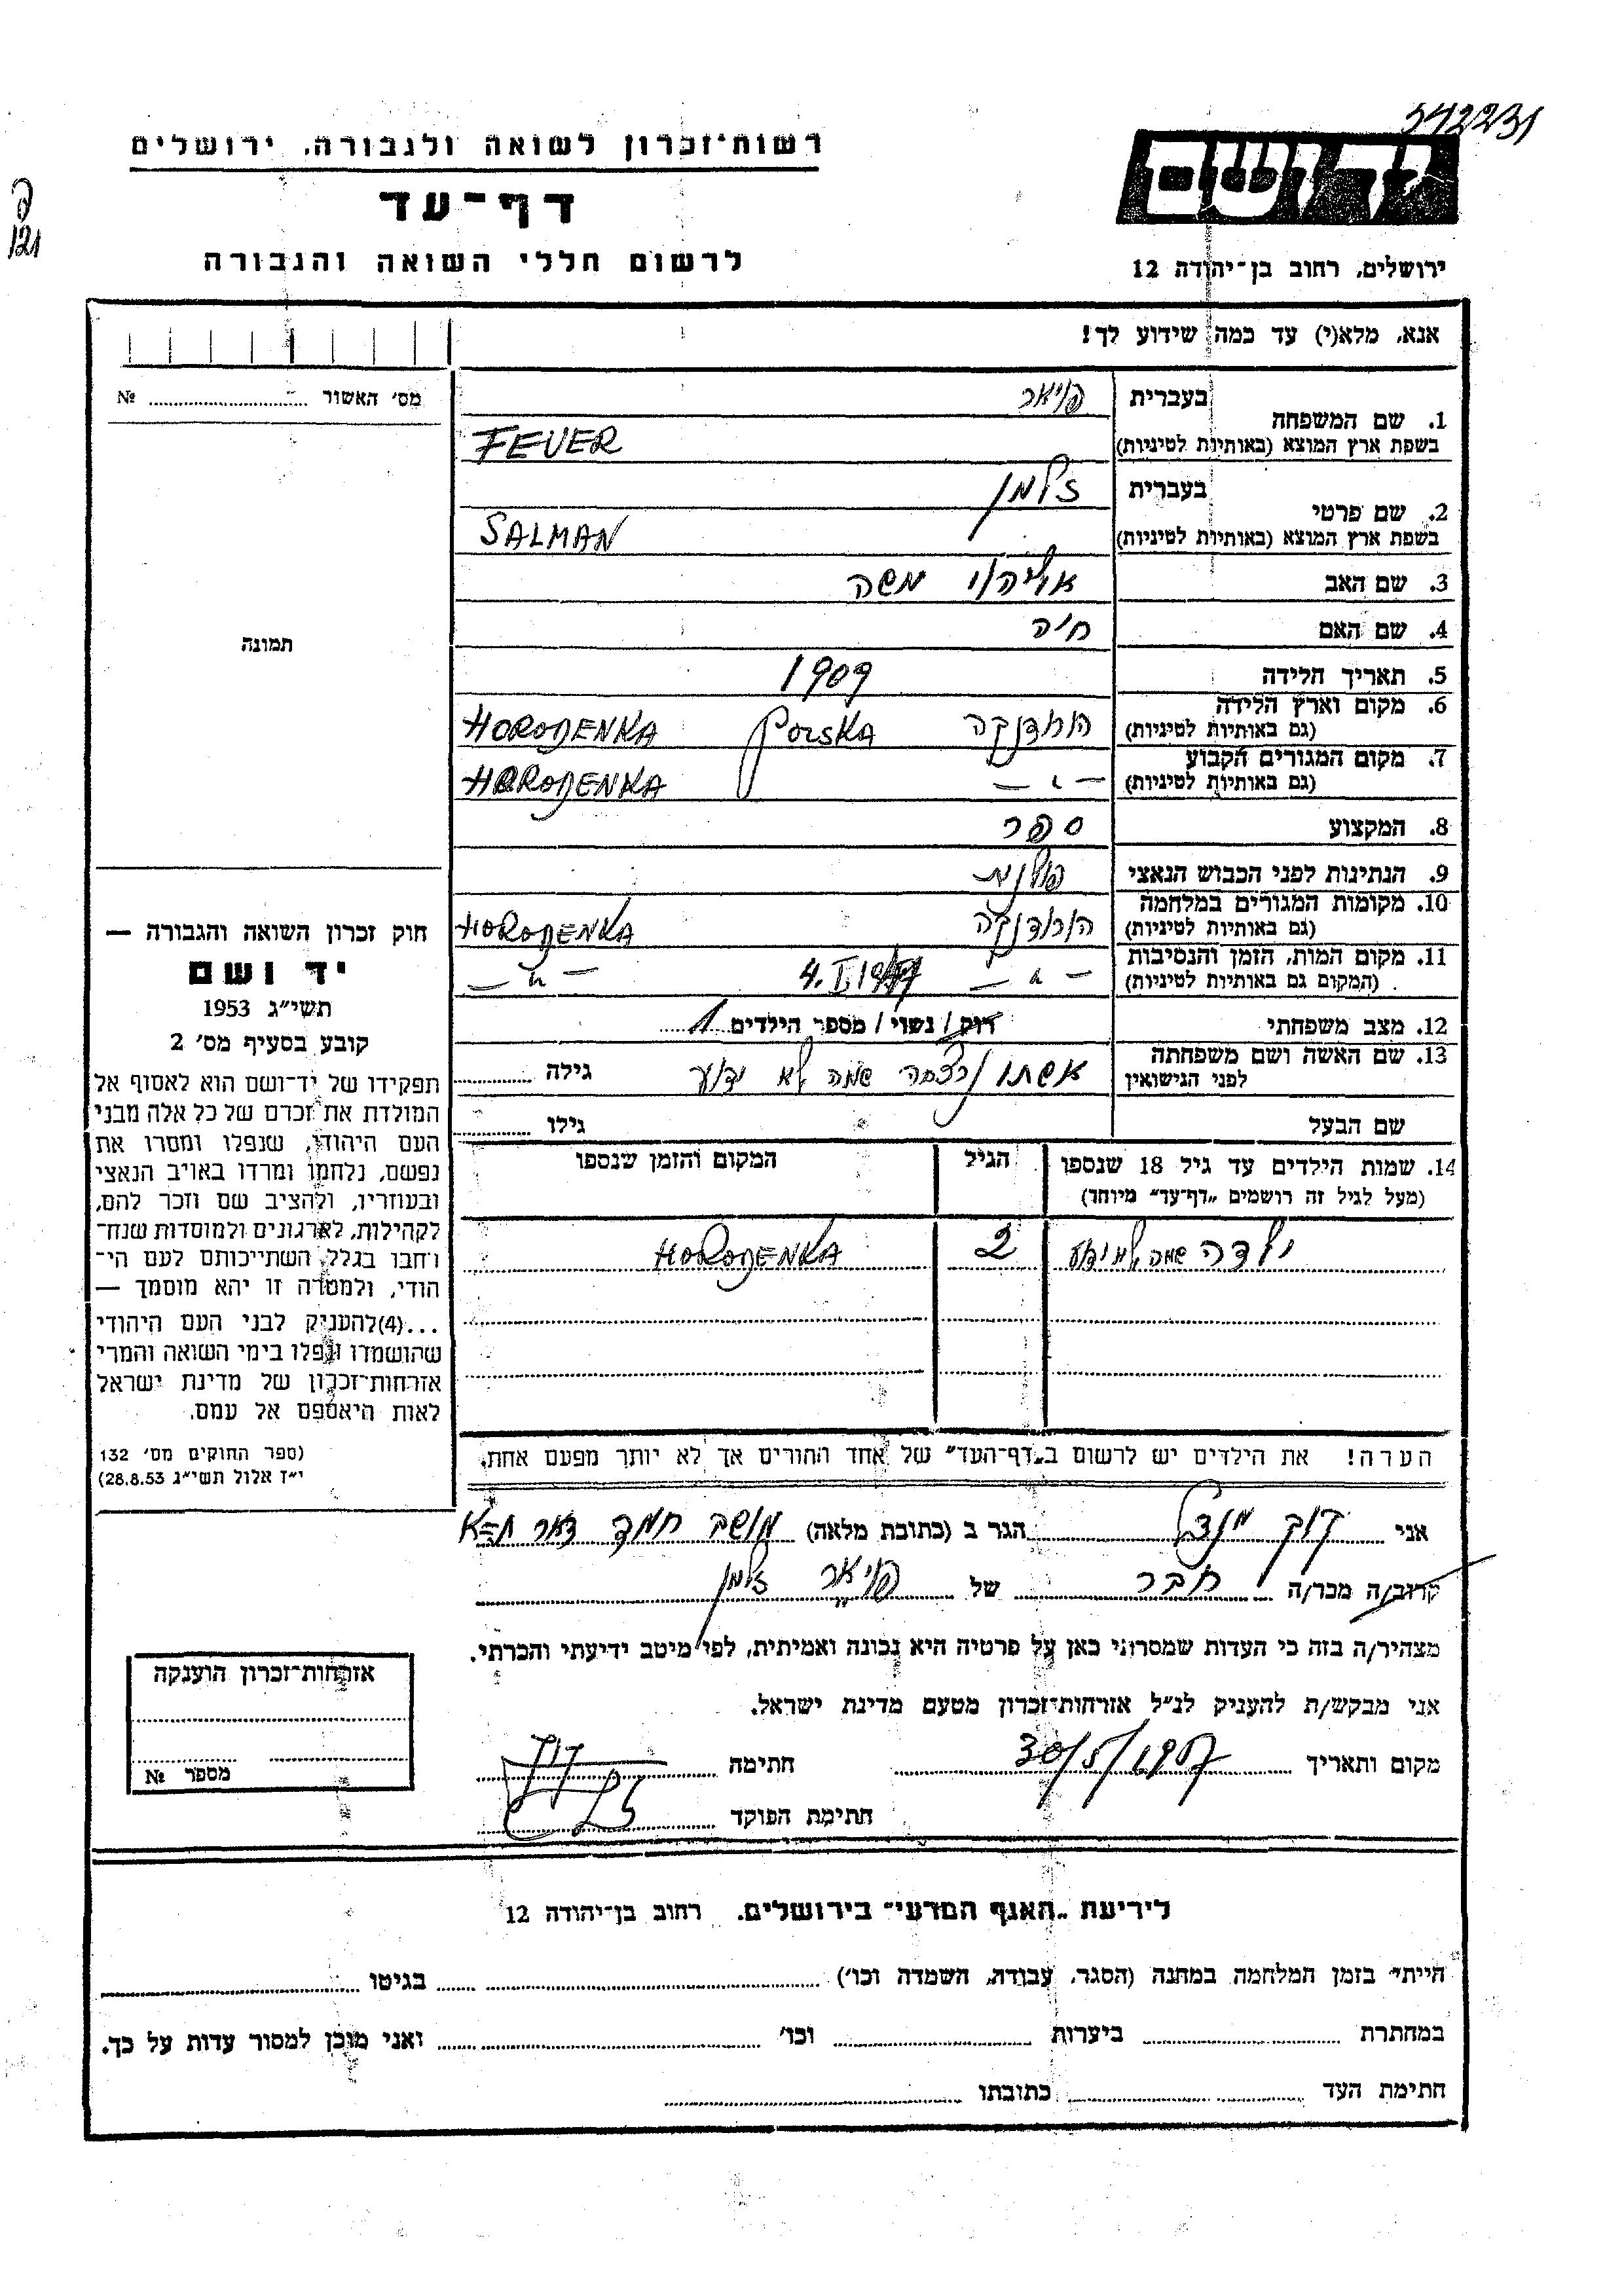 542231
רשות־זכרון לשואה ולגבורה, ירושלים
דף־עד
לרשום חללי השואה והגבורה
ידושם
ירושלים, רחוב בן־יהודה 12
121
אנא, מלא(י) עד כמה שידוע לך!
מס׳ האשור № 
1. שם המשפחה בעברית פויאר
בשפת ארץ המוצא (באותיות לטיניות) FEUER
2. שם פרטי בעברית זלמן
בשפת ארץ המוצא (באותיות לטיניות) SALMAN
3. שם האב אליהו משה
4. שם האם חיה
תמונה
5. תאריך הלידה 1909
6. מקום וארץ הלידה (גם באותיות לטיניות) הורודנקה Polska HORODENKA
7. מקום המגורים הקבוע (גם באותיות לטיניות) — " — HORODENKA
8. המקצוע ספר
9. הנתינות לפני הכבוש הנאצי פולנית
10. מקומות המגורים במלחמה (גם באותיות לטיניות) הורודנקה HORODENKA
11. מקום המות, הזמן והנסיבות (המקום גם באותיות לטיניות) — " — 4.I.19 — " —
12. מצב משפחתי רוק / נשוי / מספר הילדים 1
13. שם האשה ושם משפחתה לפני הנישואין אשתו נרצחה שמה לא ידוע גילה
שם הבעל גילו
14. שמות הילדים עד גיל 18 שנספו הגיל המקום והזמן שנספו
(מעל לגיל זה רושמים „דף־עד״ מיוחד)
ילדה שמה לא ידוע 2 HORODENKA
חוק זכרון השואה והגבורה —
יד ושם
תשי״ג 1953
קובע בסעיף מס׳ 2
תפקידו של יד־ושם הוא לאסוף אל
המולדת את זכרם של כל אלה מבני
העם היהודי, שנפלו ומסרו את
נפשם, נלחמו ומרדו באויב הנאצי
ובעוזריו, ולהציב שם וזכר להם,
לקהילות, לארגונים ולמוסדות שנח־
רחבו בגלל השתייכותם לעם הי־
הודי, ולמטרה זו יהא מוסמך —
...(4)להעניק לבני העם היהודי
שהושמדו ונפלו בימי השואה והמרי
אזרחות־זכרון של מדינת ישראל
לאות היאספם אל עמם.
(ספר החוקים מס׳ 132
י״ז אלול תשי״ג 28.8.53)
הערה! את הילדים יש לרשום ב„דף־העד״ של אחד ההורים אך לא יותר מפעם אחת.
אני קוך מנדל הגר ב (כתובת מלאה) מושב חמד דאר
קרוב/ה מכר/ה חבר של פויאר זלמן
מצהיר/ה בזה כי העדות שמסרתי כאן על פרטיה היא נכונה ואמיתית, לפי מיטב ידיעתי והכרתי.
אני מבקש/ת להעניק לנ״ל אזרחות־זכרון מטעם מדינת ישראל.
מקום ותאריך 30/5/1957 חתימה
חתימת הפוקד
אזרחות־זכרון הוענקה
מספר №
לידיעת „האגף המדעי״ בירושלים, רחוב בן־יהודה 12
הייתי בזמן המלחמה במחנה (הסגר, עבודה, השמדה וכו׳) בגיטו
במחתרת ביערות וכו׳ ואני מוכן למסור עדות על כך.
חתימת העד כתובתו